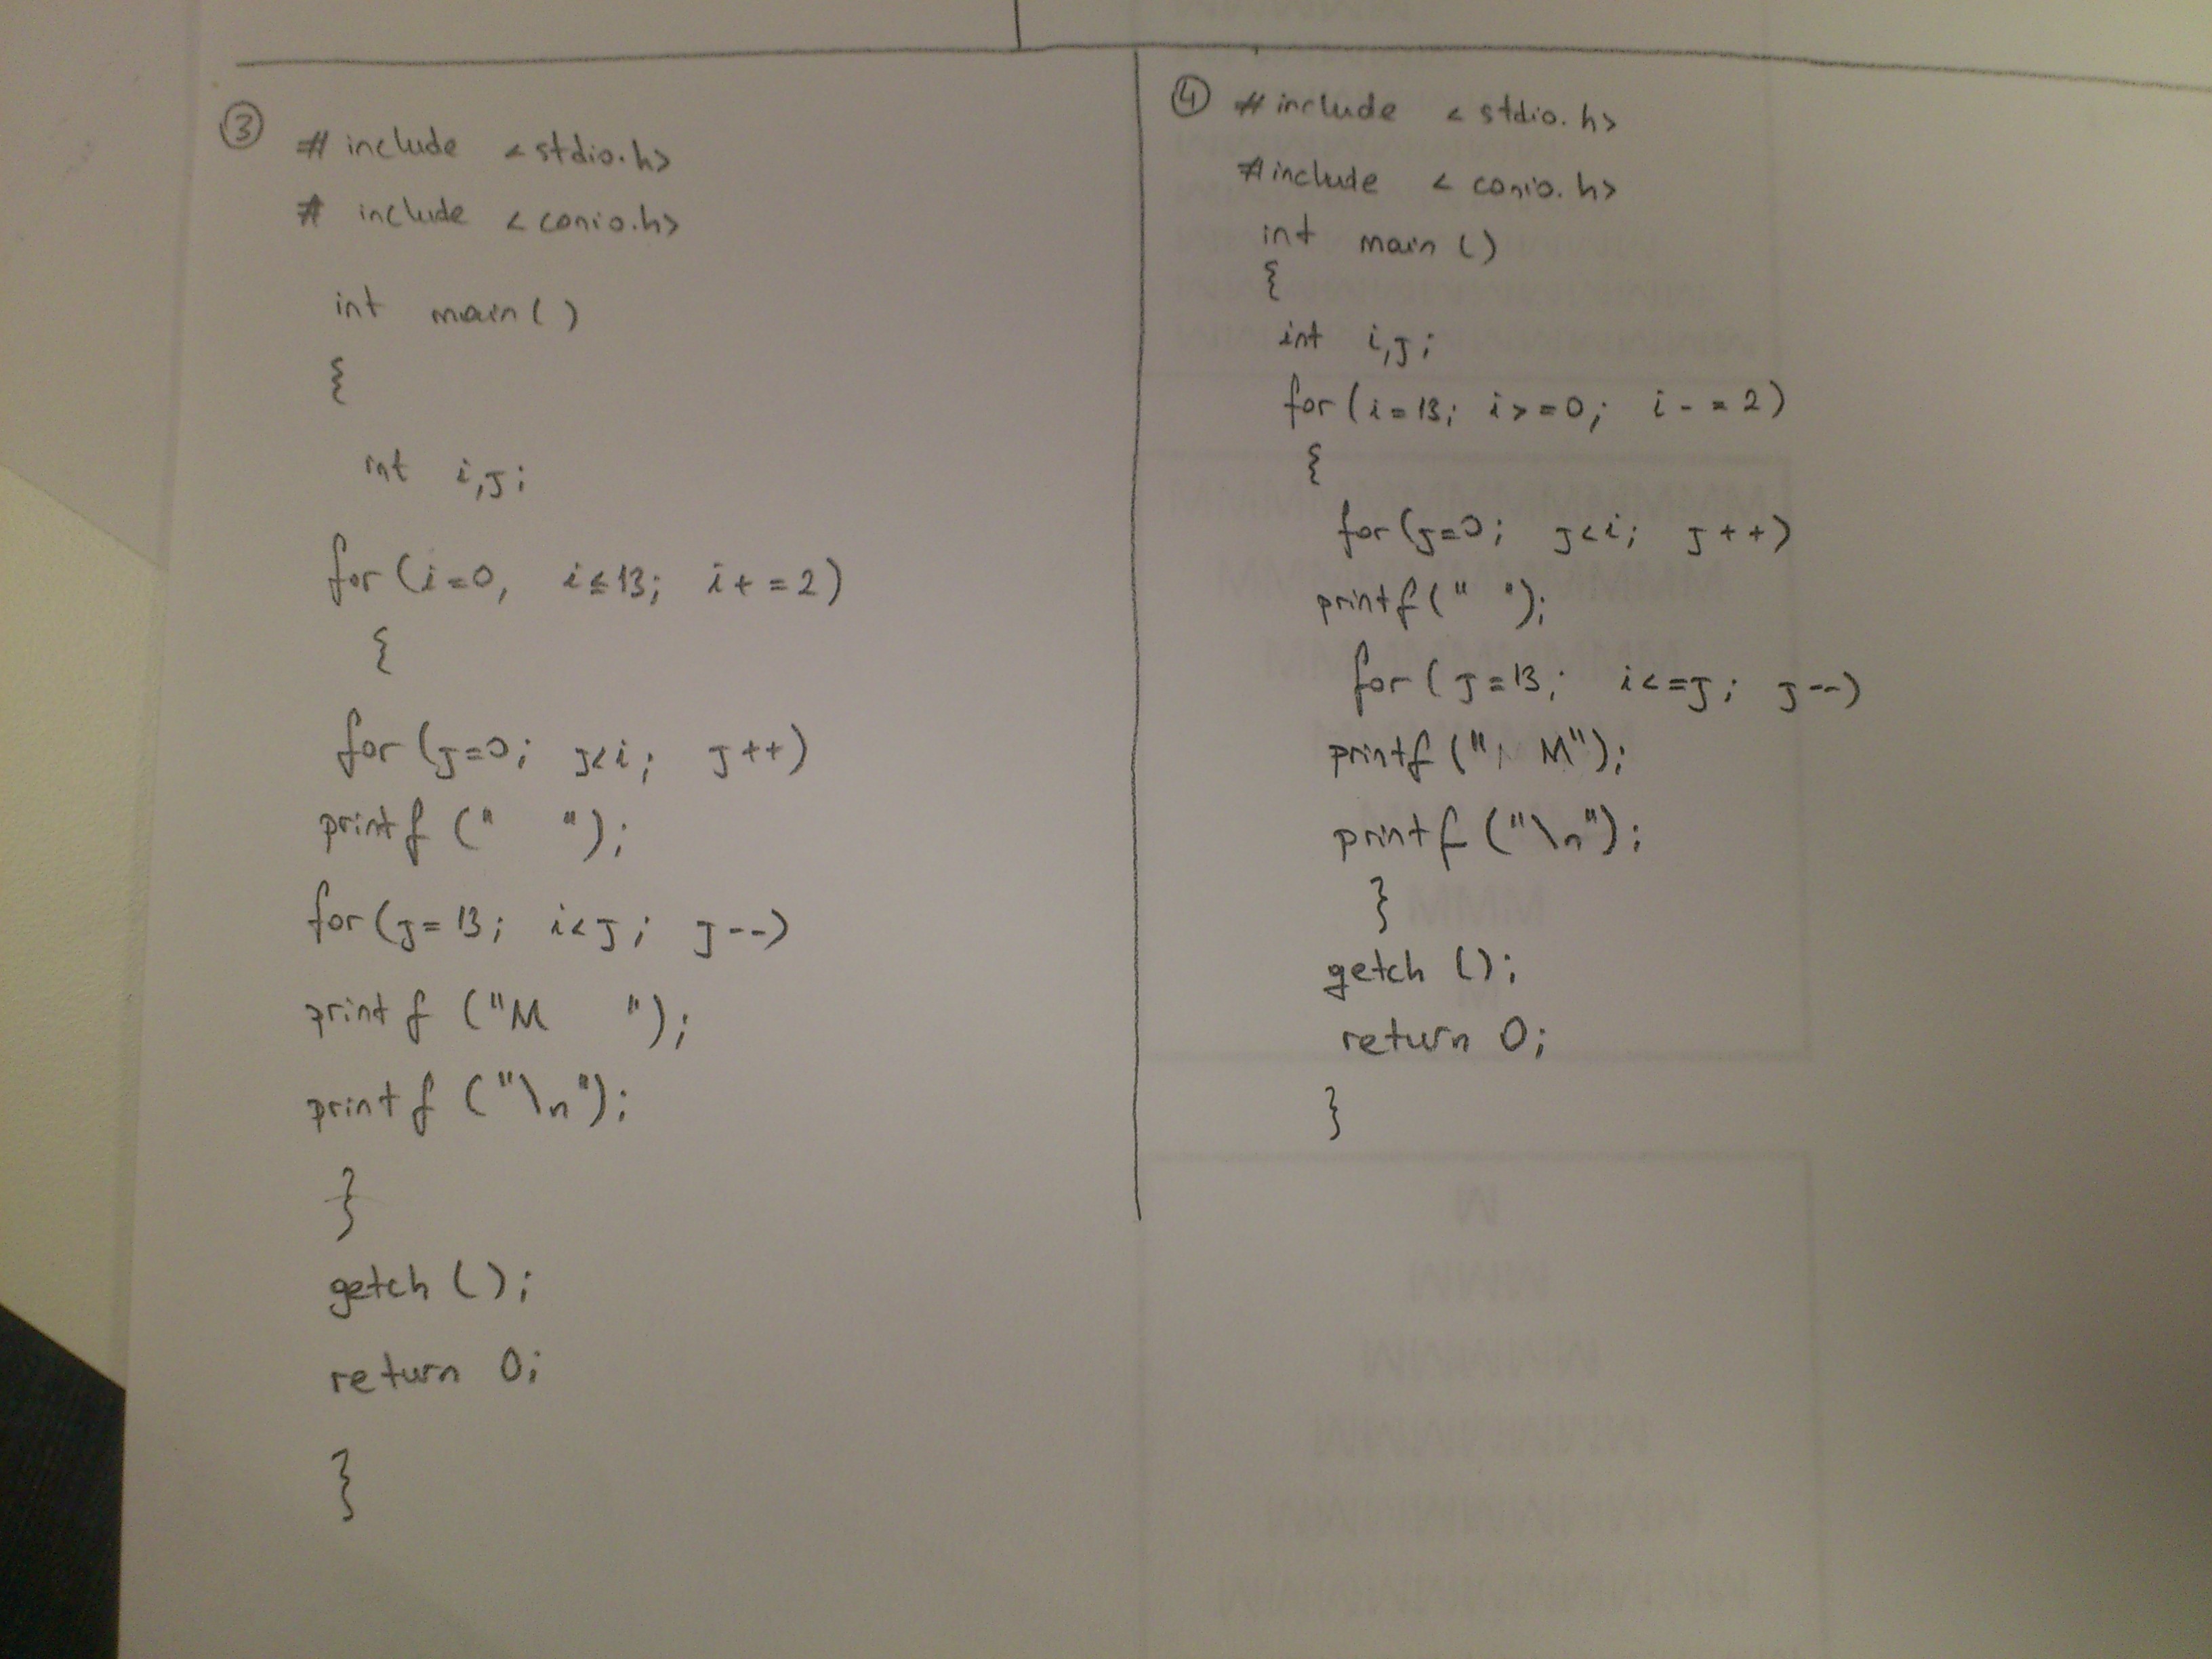 ③
# include <stdio.h>
# include <conio.h>
int main()
{
int i,j;
for (i=0, i≤13; i+=2)
{
for (j=0; j<i; j++)
printf ("   ");
for (j=13; i<j; j--)
printf ("M   ");
printf ("\n");
}
getch ();
return 0;
}
④
# include <stdio.h>
#include <conio.h>
int main ()
{
int i,j;
for (i=13; i>=0; i-=2)
{
for (j=0; j<i; j++)
printf (" ");
for (j=13; i<=j; j--)
printf (" M");
printf ("\n");
}
getch ();
return 0;
}